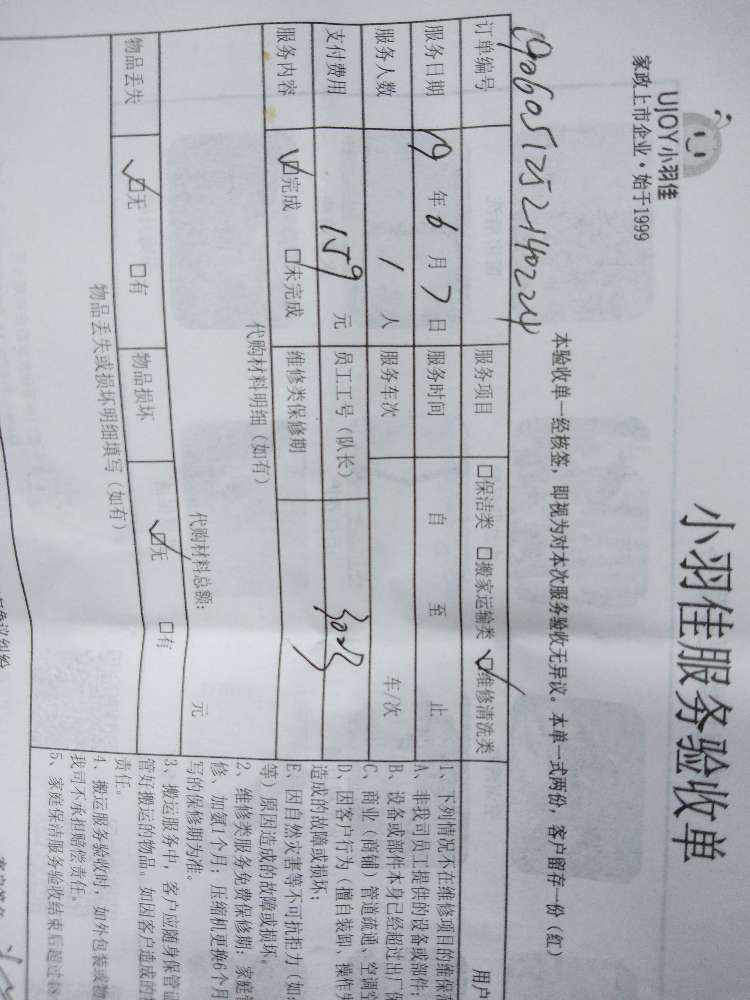 UJOY小羽佳
家政上市企业·始于1999
小羽佳服务验收单
本验收单一经核签，即视为对本次服务验收无异议。本单一式两份，客户留存一份（红）
订单编号 服务项目 □保洁类 □搬家运输类 ☑维修清洗类 用户
服务日期 19年6月7日 服务时间 自 至 止
服务人数 1人 服务车次 车/次
支付费用 159元 员工工号（队长）
服务内容 ☑完成 □未完成 维修类保修期
代购材料明细（如有）
代购材料总额： 元
物品丢失 ☑无 □有 物品损坏 ☑无 □有
物品丢失或损坏明细填写（如有）
1、下列情况不在维修项目的维保
A、非我司员工提供的设备或部件；
B、设备或部件本身已经超过出厂保
C、商业（商铺）管道疏通、空调空
D、因客户行为（擅自装卸、操作
造成的故障或损坏；
E、因自然灾害等不可抗拒力（如：
等）原因造成的故障或损坏。
2、维修类服务免费保修期：家庭
修、加氨1个月；压缩机更换6个月
写的保修期为准。
3、搬运服务中，客户应随身保管
管好搬运的物品。如因客户造成的
责任。
4、搬运服务验收时，如外包装或物
我司不承担赔偿责任。
5、家庭保洁服务验收结束后超过